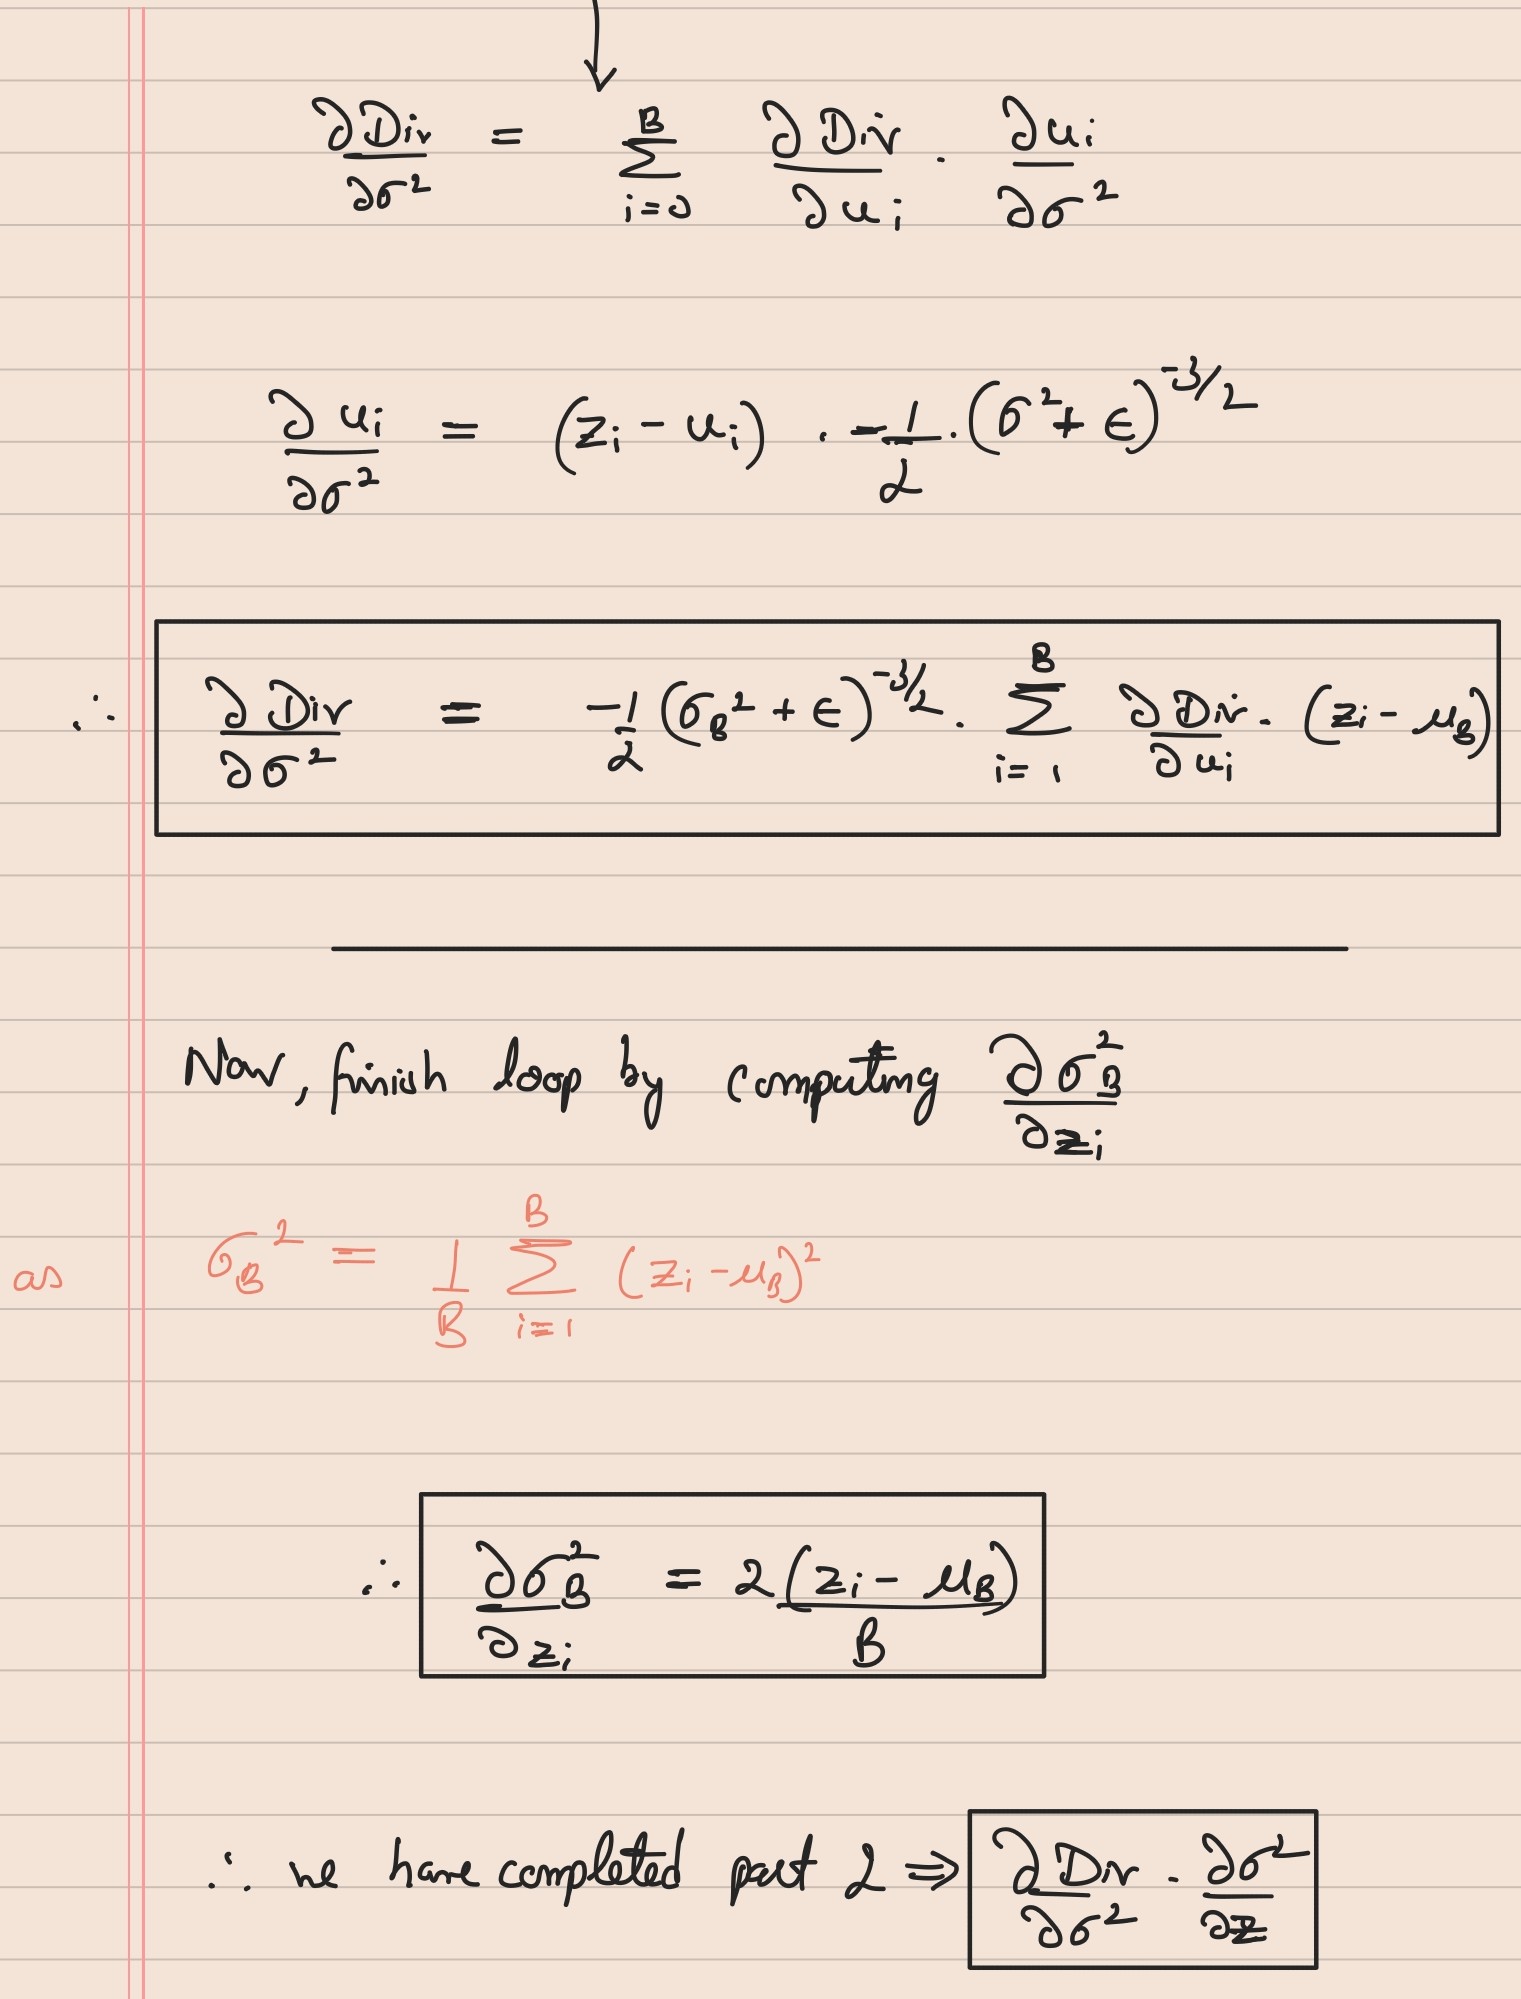 ∂Div/∂σ² = Σ_{i=0}^{B} ∂Div/∂u_i · ∂u_i/∂σ²
∂u_i/∂σ² = (z_i - u_i) · -1/2 · (σ² + ϵ)^{-3/2}
∴ ∂Div/∂σ² = -1/2 (σ_B² + ϵ)^{-3/2} · Σ_{i=1}^{B} ∂Div/∂u_i · (z_i - μ_B)
Now, finish loop by computing ∂σ_B²/∂z_i
as σ_B² = 1/B Σ_{i=1}^{B} (z_i - μ_B)²
∴ ∂σ_B²/∂z_i = 2(z_i - μ_B)/B
∴ we have completed part 2 ⇒ ∂Div/∂σ² · ∂σ²/∂z